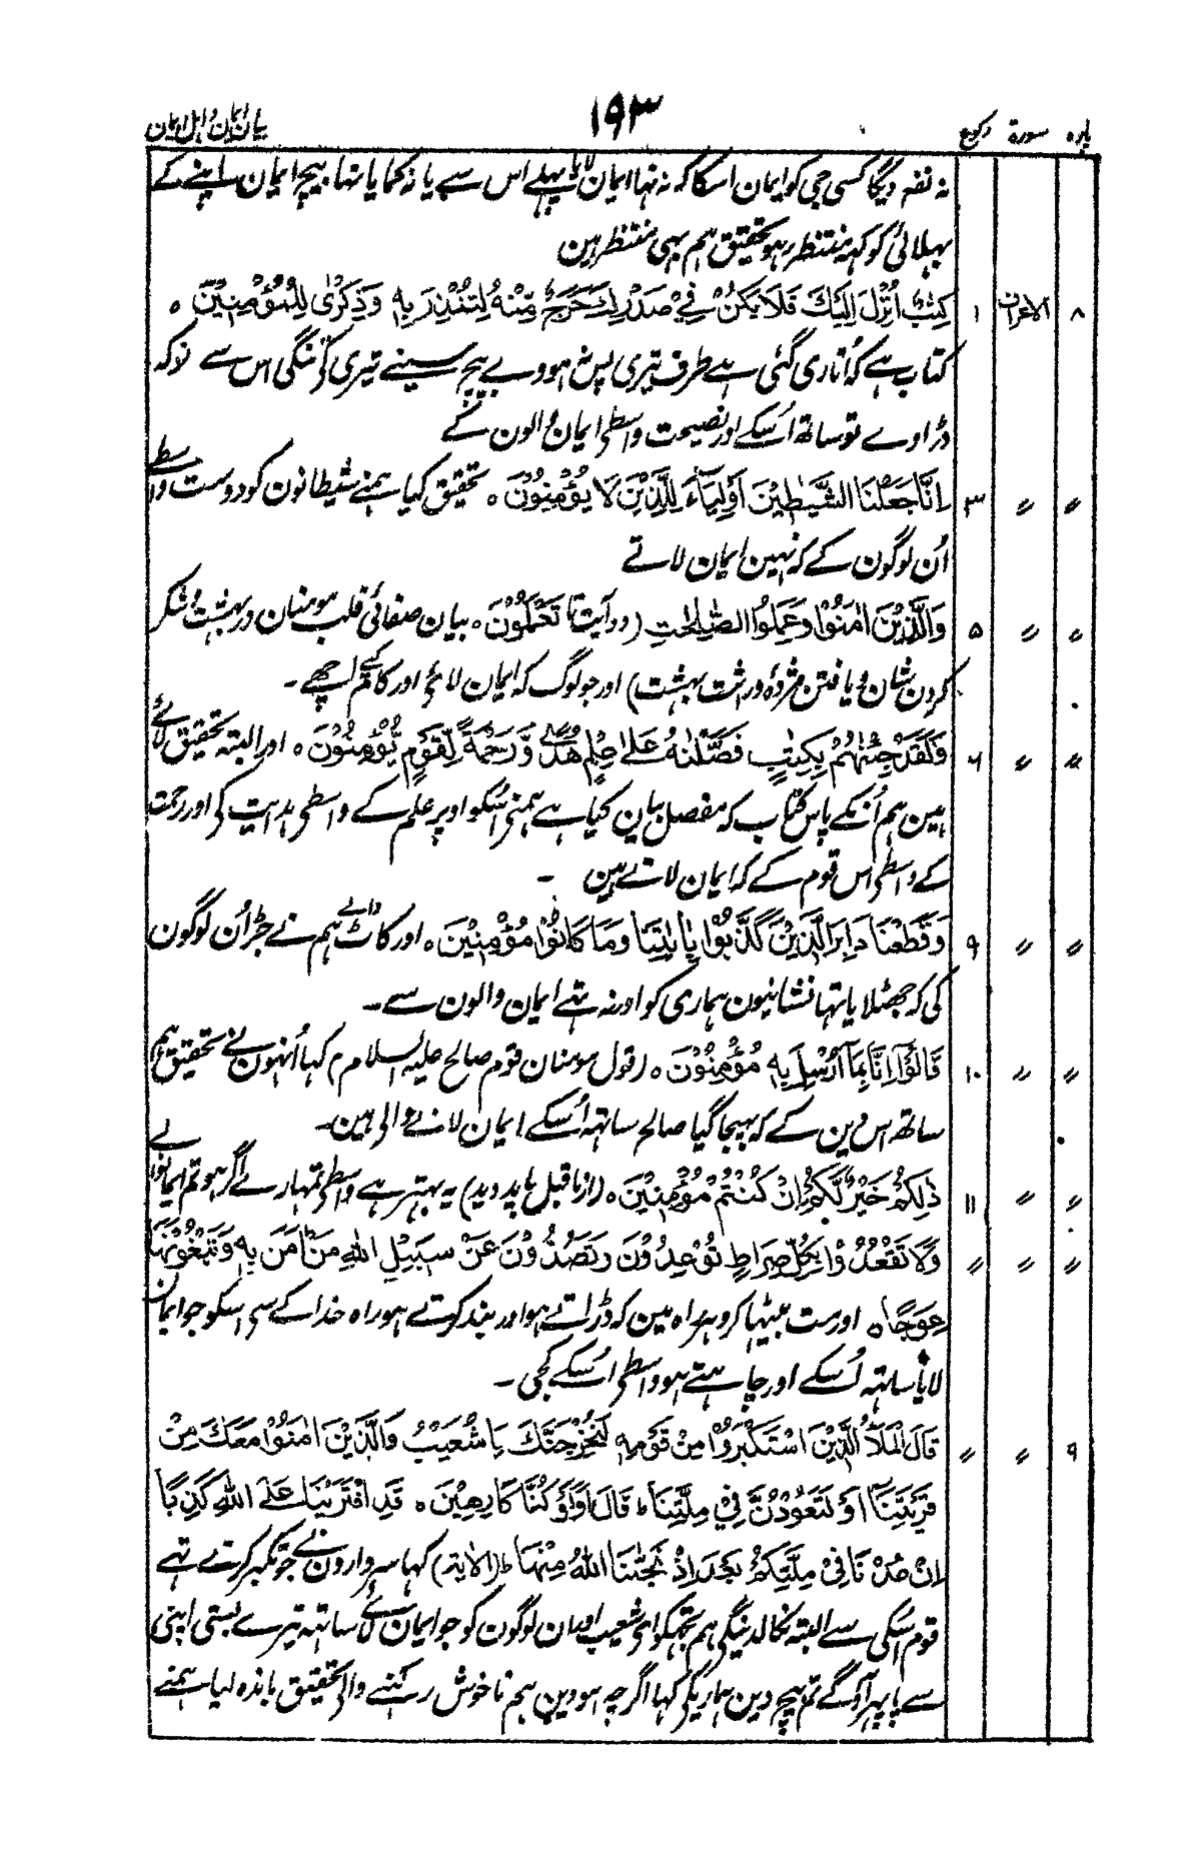 پارہ سورۃ رکوع ۱۹۳ بیان ایمان و اہل ایمان
نہ نفع دیگا کسی جی کو ایمان اسکا کہ نہ تہا ایمان لایا پہلے اس سے یا نہ کمایا تہا بیچ ایمان اپنے کے
بہلائی کو کہہ منتظر رہو تحقیق ہم بہی منتظر ہین
۸ الاعراف ۱ كِتٰبٌ اُنْزِلَ اِلَيْكَ فَلَا يَكُنْ فِيْ صَدْرِكَ حَرَجٌ مِّنْهُ لِتُنْذِرَ بِهٖ وَذِكْرٰى لِلْمُؤْمِنِيْنَ ہ
کتاب ہے کہ اُتاری گئی ہے طرف تیری پس نہ ہووے بیچ سینے تیری کی تنگی اس سے توکہ
ڈراوے تو ساتھ اُسکے اور نصیحت واسطی ایمان والون کے
〃 〃 ۳ اِنَّا جَعَلْنَا الشَّيٰطِيْنَ اَوْلِيَآءَ لِلَّذِيْنَ لَا يُؤْمِنُوْنَ ہ تحقیق کیا ہمنے شیطانون کو دوست واسطے
اُن لوگون کے کہ نہین ایمان لاتے
〃 〃 ۵ وَالَّذِيْنَ اٰمَنُوْا وَعَمِلُوا الصّٰلِحٰتِ (دو آیت تا تَعْمَلُوْنَ ہ بیان صفائی قلب مومنان در بہشت و شکر
کردن شان و یافتن مژدہ وراثت بہشت) اور جو لوگ کہ ایمان لائے اور کام کئے اچھے ۔
〃 〃 ۶ وَلَقَدْ جِئْنٰهُمْ بِكِتٰبٍ فَصَّلْنٰهُ عَلٰى عِلْمٍ هُدًى وَّرَحْمَةً لِّقَوْمٍ يُّؤْمِنُوْنَ ہ اور البتہ تحقیق لائے
ہین ہم اُنکے پاس کتاب کہ مفصل بیان کیا ہے ہمنے اُسکو اوپر علم کے واسطی ہدایت کی اور رحمت
کے واسطی اس قوم کے کہ ایمان لاتے ہین ۔
〃 〃 ۹ وَقَطَعْنَا دَابِرَ الَّذِيْنَ كَذَّبُوْا بِاٰيٰتِنَا وَمَا كَانُوْا مُؤْمِنِيْنَ ہ اور کاٹ ڈالے ہم نے جڑ اُن لوگون
کی کہ جھٹلایا تہا نشانیون ہماری کو اور نہ تھے ایمان والون سے ۔
〃 〃 ۱۰ قَالُوْٓا اِنَّا بِمَآ اُرْسِلَ بِهٖ مُؤْمِنُوْنَ ہ (قول مومنان قوم صالح علیہ السلام) کہا اُنہون نے تحقیق ہم
ساتھ اس دین کے کہ بہیجا گیا صالح ساتہہ اُسکے ایمان لانے والی ہین ۔
〃 〃 ۱۱ ذٰلِكُمْ خَيْرٌ لَّكُمْ اِنْ كُنْتُمْ مُّؤْمِنِيْنَ ہ (از ماقبل باید دید) یہ بہتر ہے واسطی تمہارے اگر ہو تم ایمانوالے
〃 〃 〃 وَلَا تَقْعُدُوْا بِكُلِّ صِرَاطٍ تُوْعِدُوْنَ وَتَصُدُّوْنَ عَنْ سَبِيْلِ اللّٰهِ مَنْ اٰمَنَ بِهٖ وَتَبْغُوْنَهَا
عِوَجًا ہ اور مت بیٹہا کرو ہر راہ مین کہ ڈراتے ہو اور بند کرتے ہو راہ خدا کے سی اسکو جو ایمان
لایا ساتہہ اُسکے اور چاہتے ہو واسطی اُسکے کجی ۔
۹ 〃 〃 قَالَ الْمَلَاُ الَّذِيْنَ اسْتَكْبَرُوْا مِنْ قَوْمِهٖ لَنُخْرِجَنَّكَ يَا شُعَيْبُ وَالَّذِيْنَ اٰمَنُوْا مَعَكَ مِنْ
قَرْيَتِنَآ اَوْ لَتَعُوْدُنَّ فِيْ مِلَّتِنَا ط قَالَ اَوَلَوْ كُنَّا كَارِهِيْنَ ہ قَدِ افْتَرَيْنَا عَلَى اللّٰهِ كَذِبًا
اِنْ عُدْنَا فِيْ مِلَّتِكُمْ بَعْدَ اِذْ نَجّٰىنَا اللّٰهُ مِنْهَا ط (الآیۃ) کہا سردارون نے جو تکبر کرتے تہے
قوم اسکی سے البتہ نکالدینگی ہم تجہکو ای شعیب اور ان لوگون کو جو ایمان لائے ساتہہ تیرے بستی اپنی
سے یا پہر آؤگے تم بیچ دین ہماریکی کہا اگرچہ ہووین ہم ناخوش رکہنے والی تحقیق باندہ لیا ہمنے